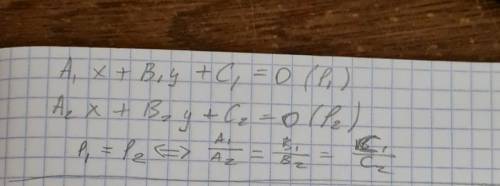 A₁ x + B₁ y + C₁ = 0 (P₁)
A₂ x + B₂ y + C₂ = 0 (P₂)
P₁ = P₂ <=> A₁/A₂ = B₁/B₂ = C₁/C₂